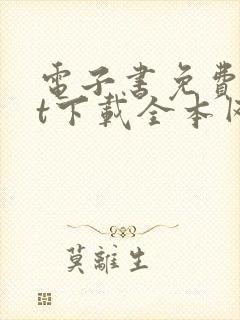 電子书免費
t下載全本
莫離生